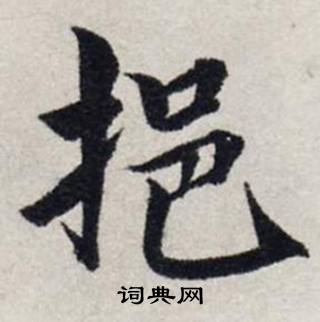 挹
词典网